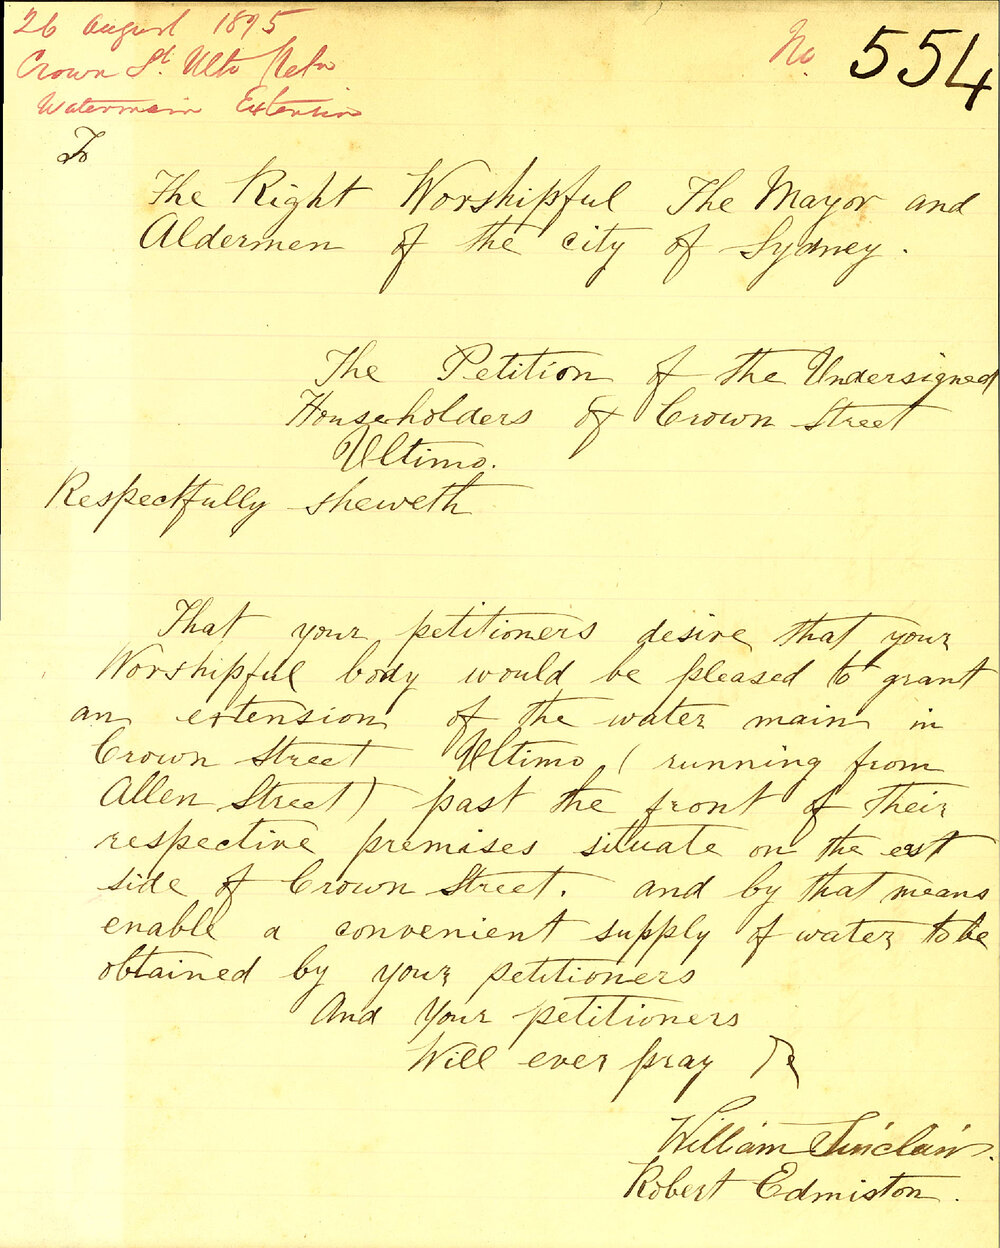 26 August 1895
No. 554
Crown St. Ulto Petn
Watermain Extension
To
The Right Worshipful The Mayor and
Aldermen of the city of Sydney.
The Petition of the Undersigned
Householders of Crown Street
Ultimo.
Respectfully sheweth
That your petitioners desire that your
Worshipful body would be pleased to grant
an extension of the water main in
Crown Street Ultimo (running from
Allen Street) past the front of their
respective premises situate on the east
side of Crown Street. and by that means
enable a convenient supply of water to be
obtained by your petitioners
And Your petitioners
Will ever pray &c
William Sinclair.
Robert Edmiston.